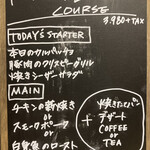 COURSE
3.980+TAX
TODAY'S STARTER
本日のカルパッチョ
豚肉のクリスピーグリル
焼きシーザーサラダ
MAIN
チキンの薪焼き
or
スモークポーク
or
白身魚のロースト
+
焼きたてパン
デザート
COFFEE
or
TEA